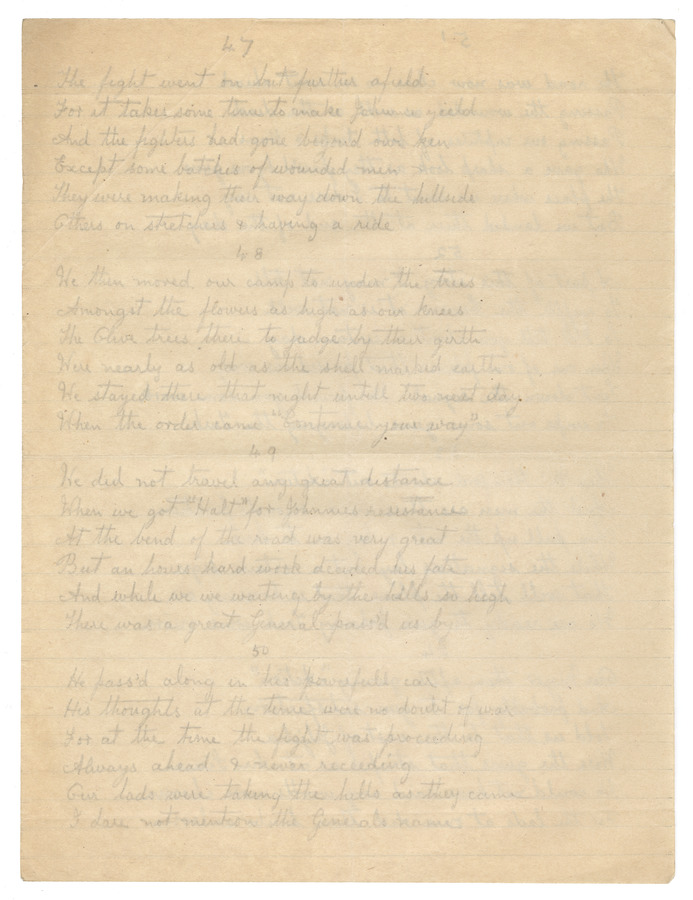 47
The fight went on but further afield
For it takes some time to make Johnnie yeild
And the fighters had gone beyond our ken
Except some batches of wounded men
They were making their way down the hillside
Others on stretchers & having a ride
48
We then moved our camp to under the trees
Amongst the flowers as high as our knees
The Olive trees their to judge by their girth
Were nearly as old as the shell marked earth
We stayed there that night untill two next day
When the order came "Continue your way"
49
We did not travel any great distance
When we got "Halt" for Johnnies resistance
At the bend of the road was very great
But an hours hard work decided his fate
And while we we waiting by the hills so high
There was a great General pass'd us by
50
He pass'd along in his powerfull car
His thoughts at the time were no doubt of war
For at the time the fight was proceeding
Always ahead & never receeding
Our lads were taking the hills as they came
I dare not mention the Generals name